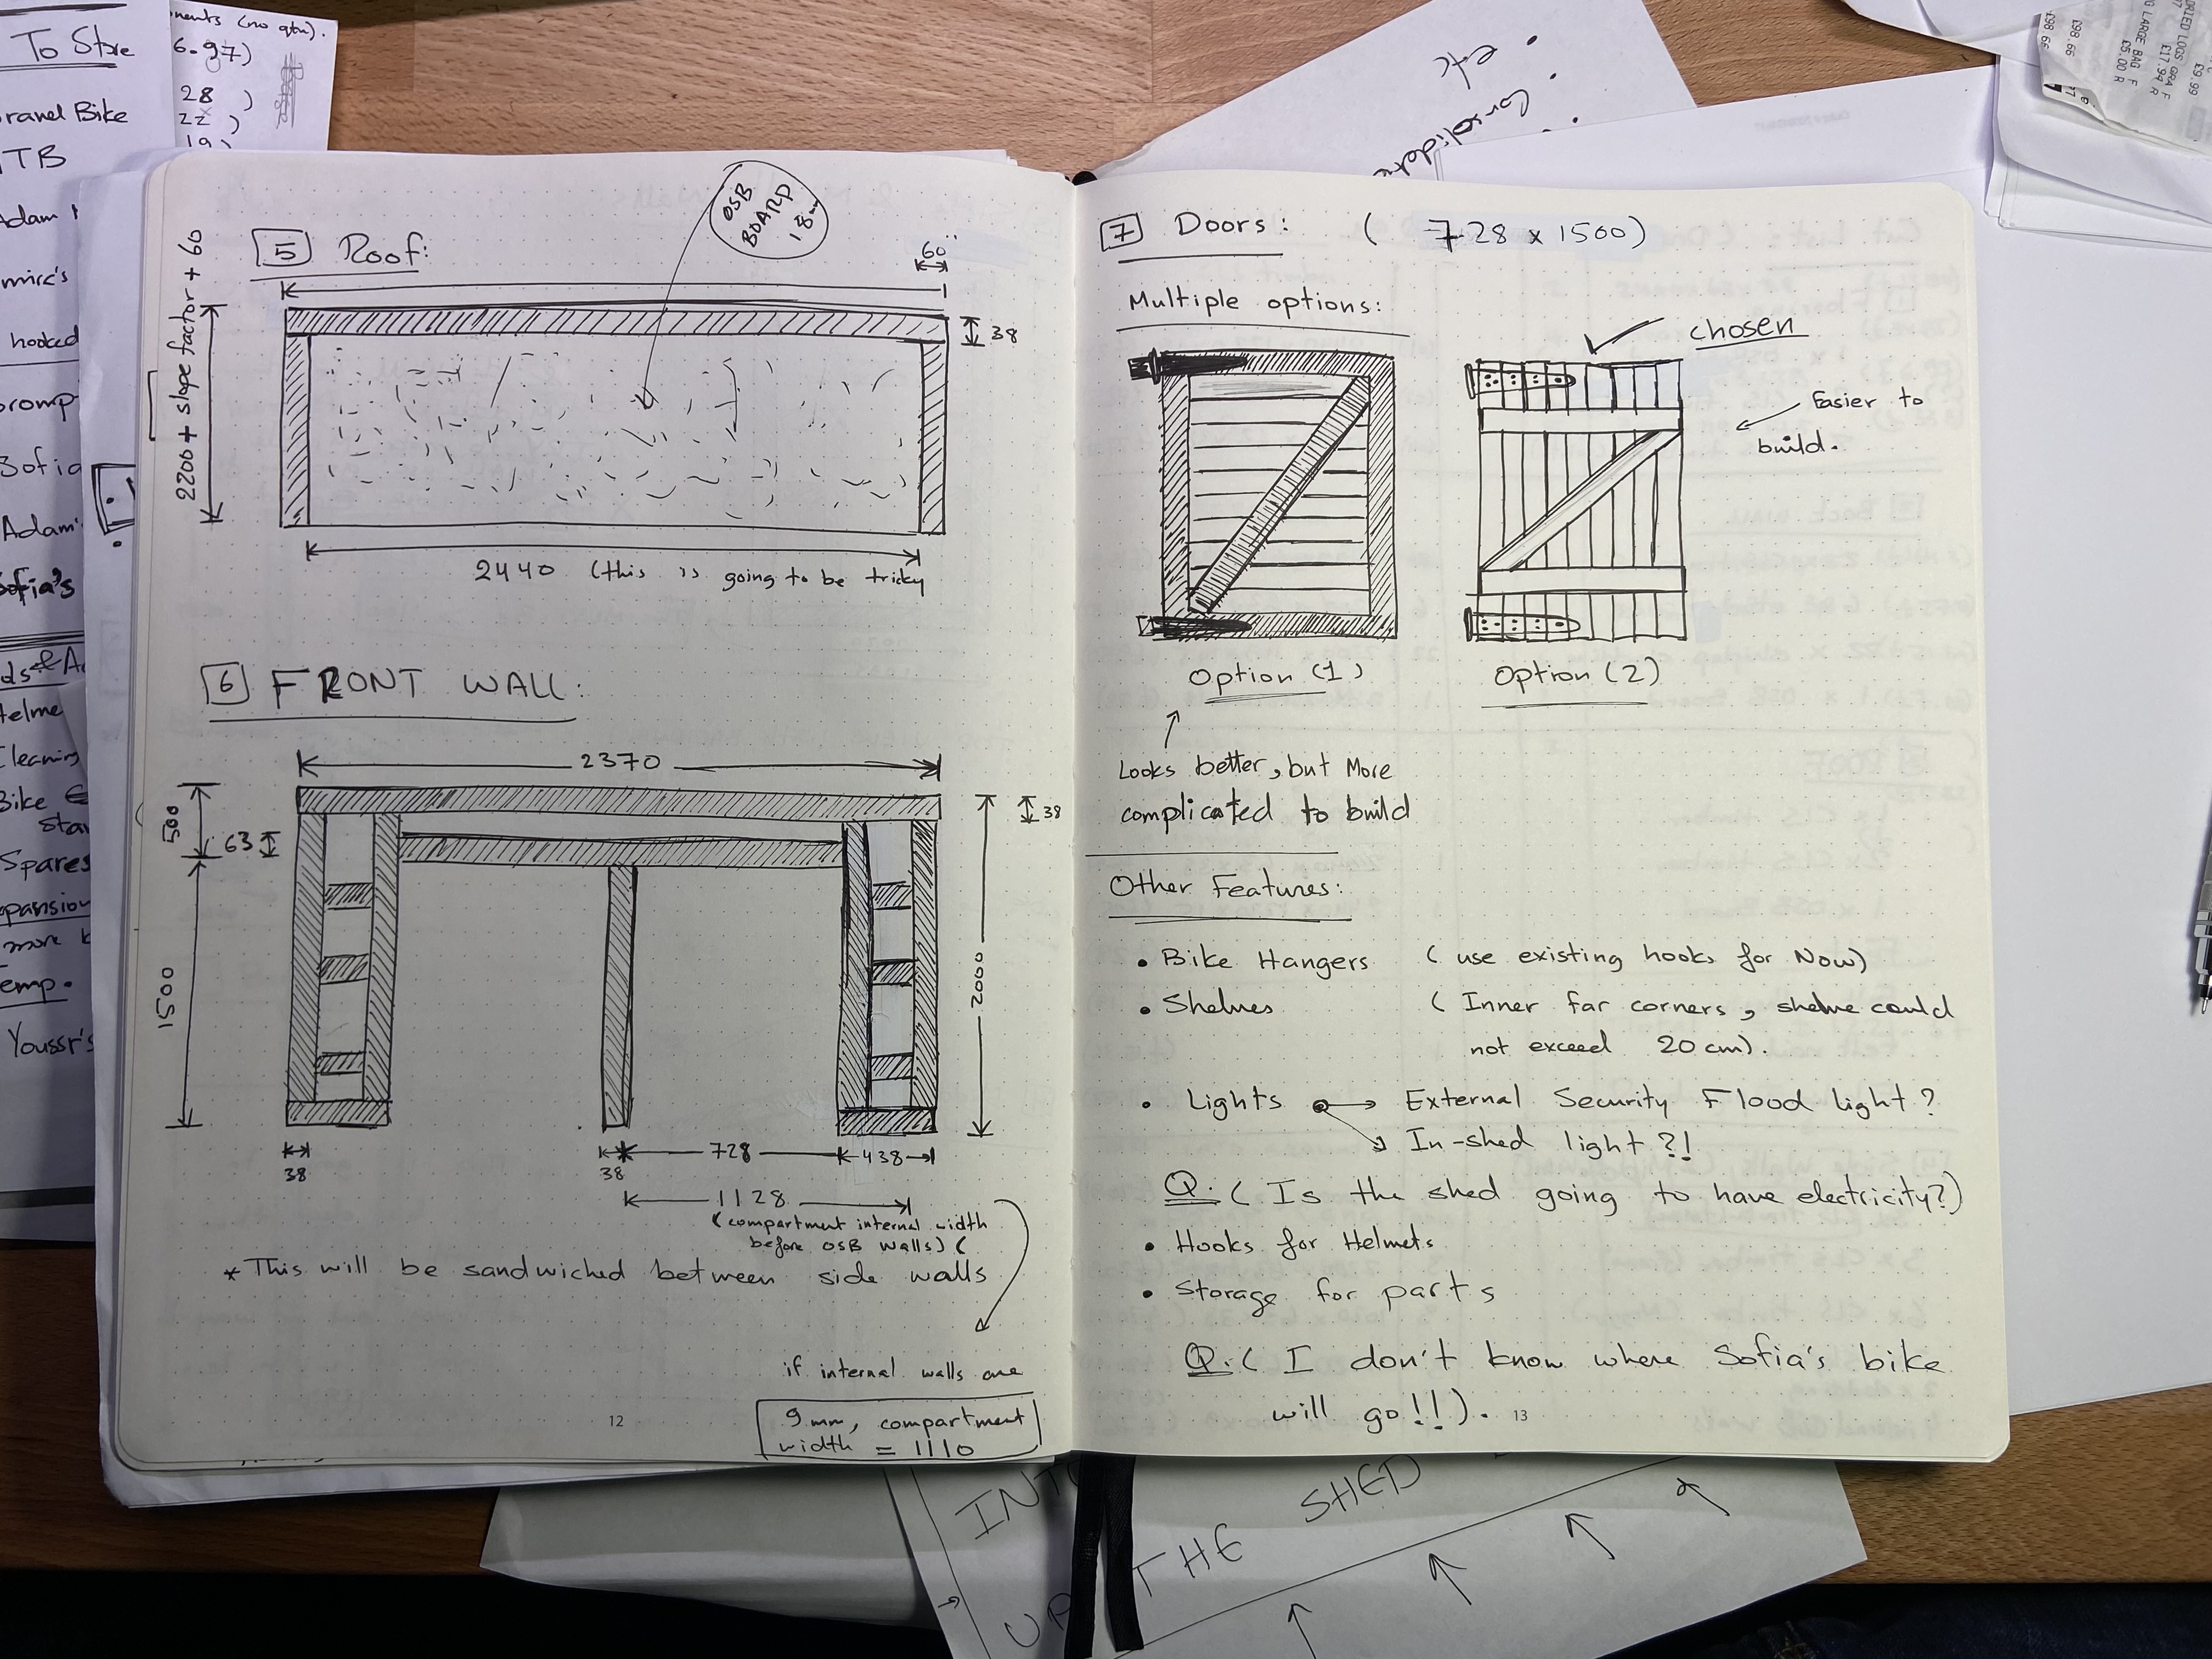 To Store
Bike
TB
Adam
hooked
Sofia
Adam's
Sofia's
Cleaning
Bike
Spares
more
Temp.
Youssr's
(no qtn).
6.97)
28 )
22 )
19)
etc
Consolidate
£98.66
£98.66
£9.99
LOGS
LARGE BAG F
£17.94 R
£5.00 R
5 Roof:
OSB
BOARD
18mm
60
38
2200 + slope factor + 60
2440 (this is going to be tricky
6 FRONT WALL:
2370
500
63
38
1500
2000
38
38
728
438
1128
(compartment internal width
before OSB walls) (
* This will be sandwiched between side walls
if internal walls are
9mm, compartment
width = 1110
12
7 Doors: ( 728 x 1500)
Multiple options:
chosen
Easier to
build.
Option (1)
Option (2)
Looks better, but More
complicated to build
Other Features:
• Bike Hangers ( use existing hooks for Now)
• Shelves ( Inner far corners, shelve could
not exceed 20 cm).
• Lights → External Security Flood light?
In-shed light?!
Q: ( Is the shed going to have electricity?)
• Hooks for Helmets
• Storage for parts
Q: ( I don't know where Sofia's bike
will go!!).
13
THE SHED